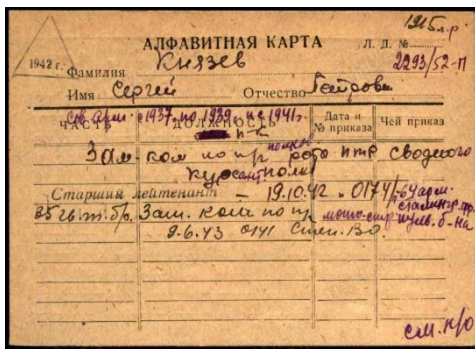 1915 г.р.
АЛФАВИТНАЯ КАРТА Л. Д. №
1942 г. Фамилия Князев 2293/52-П
Имя Сергей Отчество Петрович
Св. Арм. с 1937 по 1939 и с 1941 г.
ЧАСТЬ ДОЛЖНОСТЬ Дата и № приказа Чей приказ
п-к
Зам. ком по пр роты птр сводного
курсант полка
Старший лейтенант - 19.10.42 - 0174/ 64 арм.
сталингр. фр.
25 гв. т. бр. Зам. ком. по пр мото-стр пулем. б-на
9.6.43 0141 Степ. ВО.
см. н/о